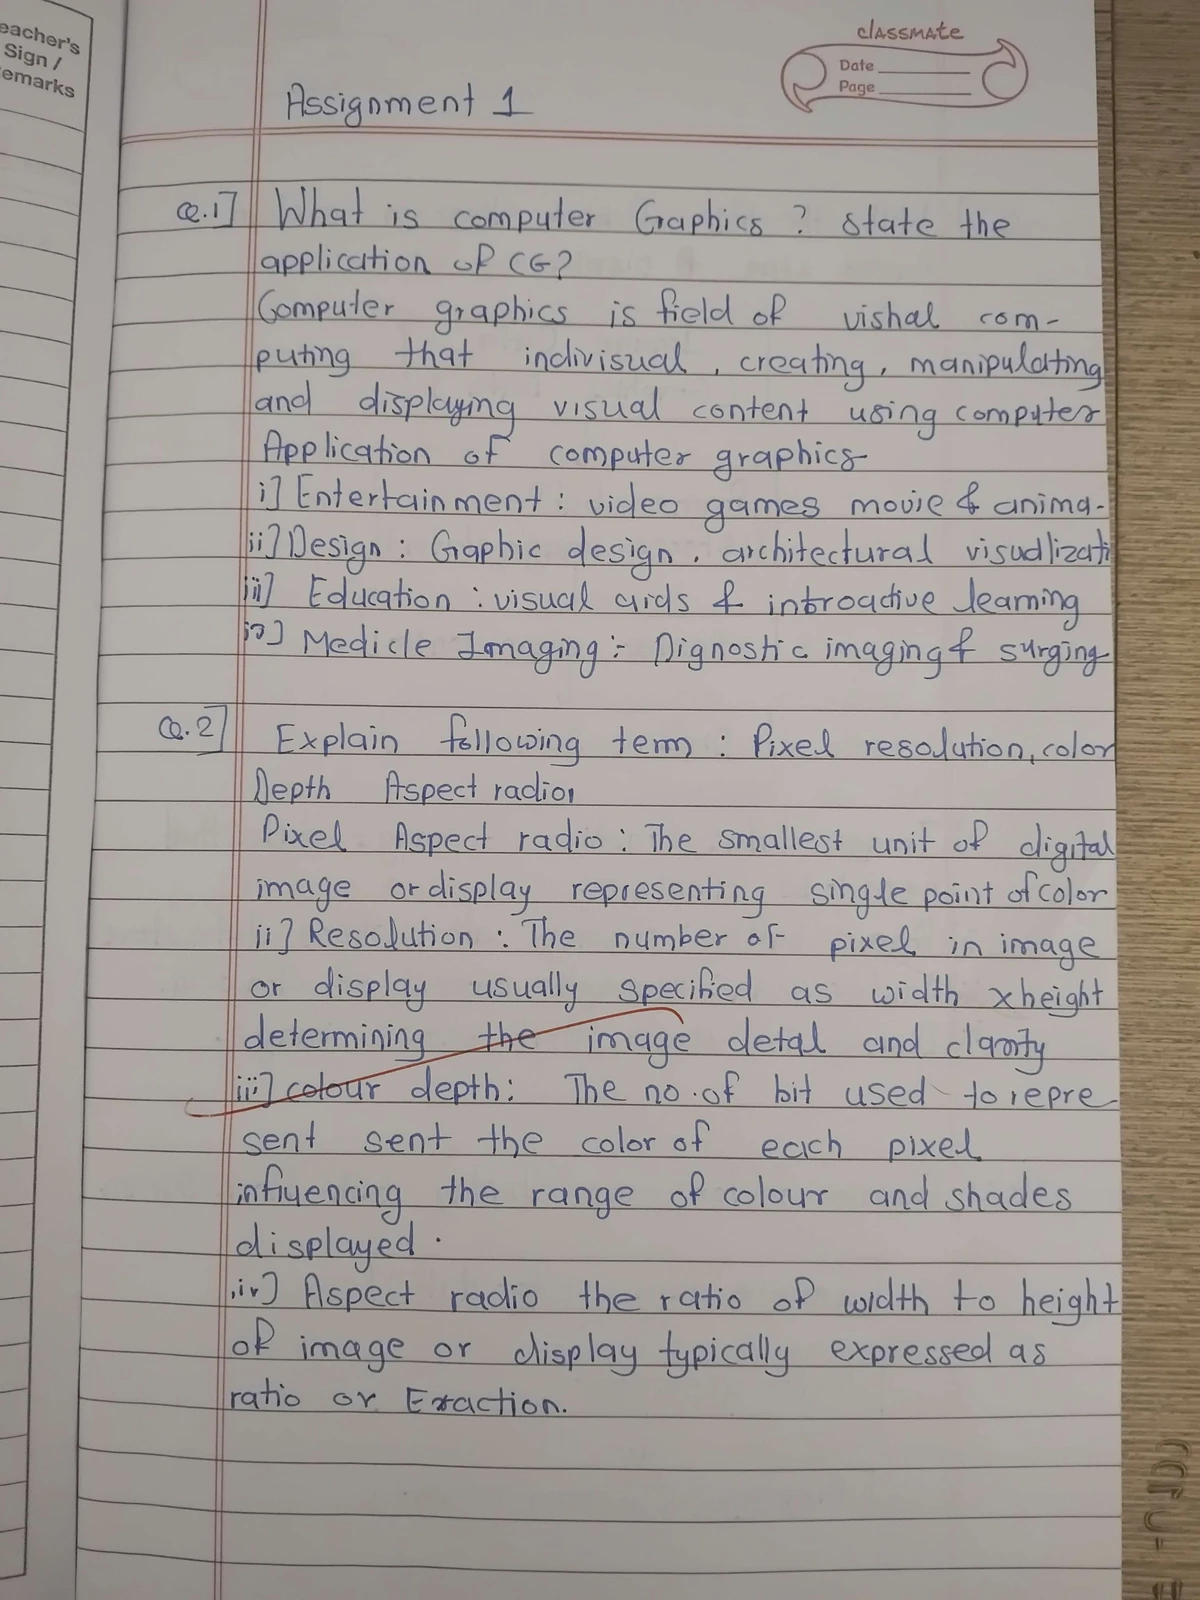 eacher's
Sign /
emarks
classmate
Date
Page
Assignment 1
Q.1] What is computer Graphics ? state the
application of CG?
Computer graphics is field of vishal com-
puting that indivisual , creating, manipulating
and displaying visual content using computer
Application of computer graphics
i] Entertainment : video games movie & anima-
ii] Design : Graphic design , architectural visudlizati
iii] Education : visual aids & introactive learning
iv] Medicle Imaging :- Dignostic imaging & surging
Q.2] Explain following term : Pixel resolution, color
Depth Aspect radio,
Pixel Aspect radio : The smallest unit of digital
image or display representing single point of color
ii] Resolution : The number of pixel in image
or display usually specified as width x height
determining the image detal and clarity
iii] colour depth : The no. of bit used to repre-
sent sent the color of each pixel
influencing the range of colour and shades
displayed .
iv] Aspect radio the ratio of width to height
of image or display typically expressed as
ratio or Exaction.